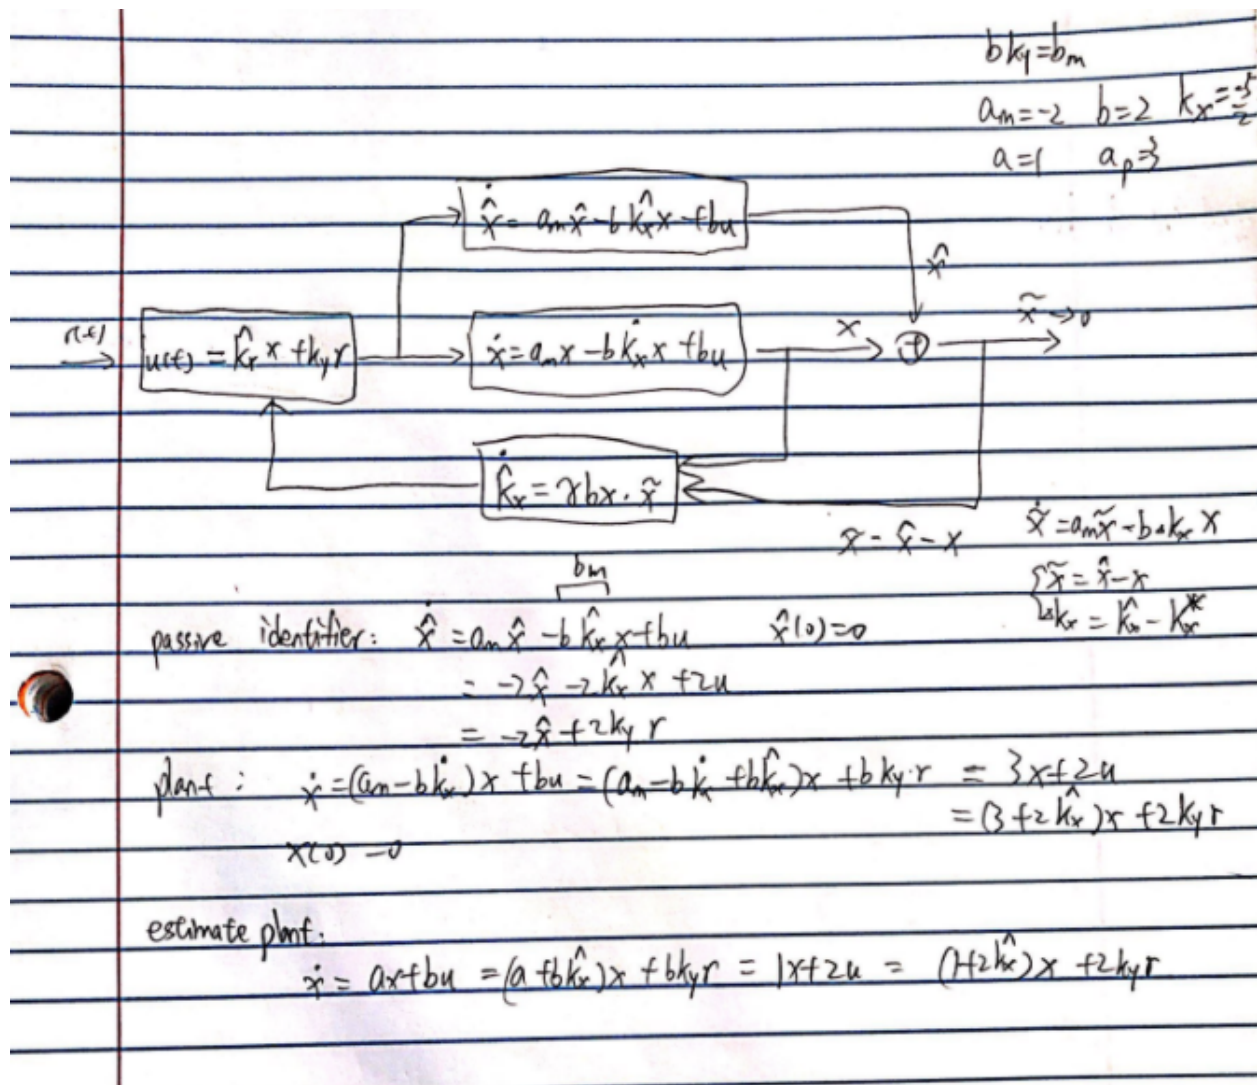 b k_y = b_m
a_m = -2 b = 2 k_x = -5/2
a = 1 a_p = 3
\dot{\hat{x}} = a_m \hat{x} - b \hat{k}_x x + bu
\hat{x}
r(t)
u(t) = \hat{k}_x x + k_y r
\dot{x} = a_m x - b \dot{k}_x x + bu
x
+
\tilde{x} → 0
\dot{\hat{k}}_x = γ b x · \tilde{x}
\tilde{x} = \hat{x} - x
\dot{\tilde{x}} = a_m \tilde{x} - b Δk_x x
{ \tilde{x} = \hat{x} - x
Δk_x = \hat{k}_x - k_x^*
b_m
passive identifier: \dot{\hat{x}} = a_m \hat{x} - b \hat{k}_x x + bu \hat{x}(0) = 0
= -2\hat{x} - 2\hat{k}_x x + 2u
= -2\hat{x} + 2k_y r
plant: \dot{x} = (a_m - b\dot{k}_x) x + bu = (a_m - b\dot{k}_x + b\hat{k}_x) x + b k_y · r = 3x + 2u
= (3 + 2\hat{k}_x) x + 2k_y r
x(0) = 0
estimate plant:
\dot{x} = ax + bu = (a + b\hat{k}_x) x + b k_y r = 1x + 2u = (1 + 2\hat{k}_x) x + 2k_y r